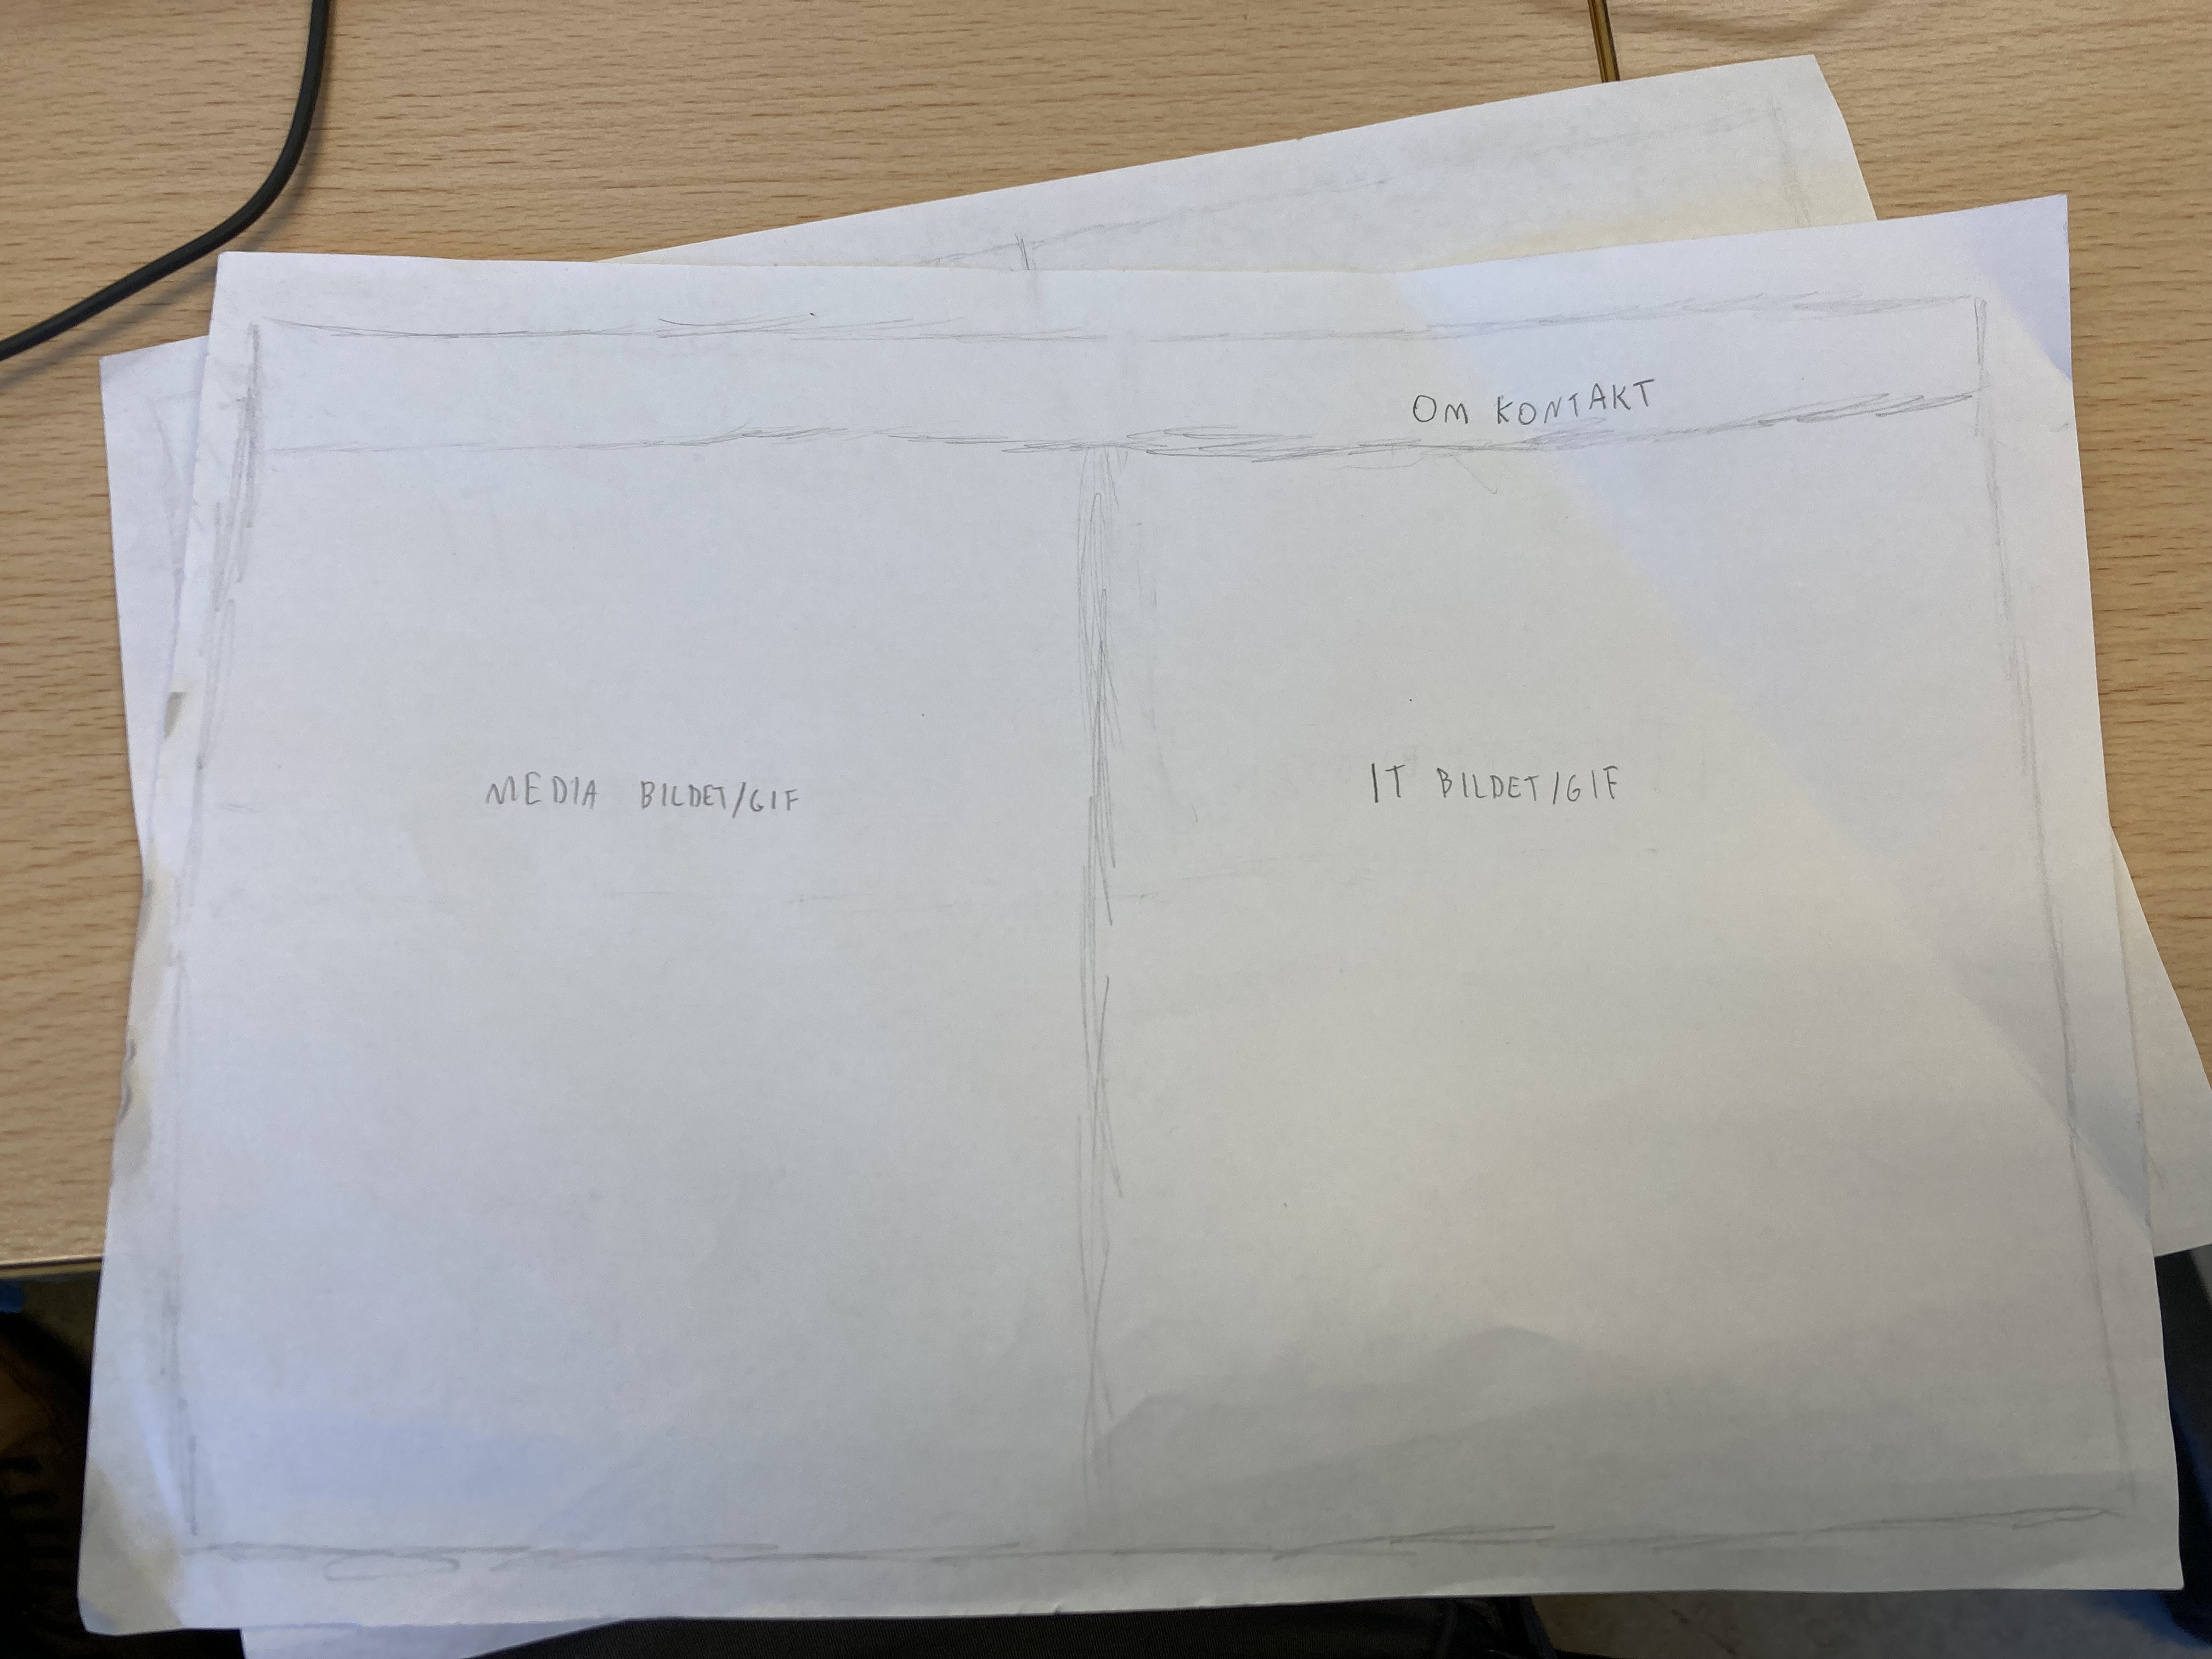 OM KONTAKT
MEDIA BILDET/GIF
IT BILDET/GIF